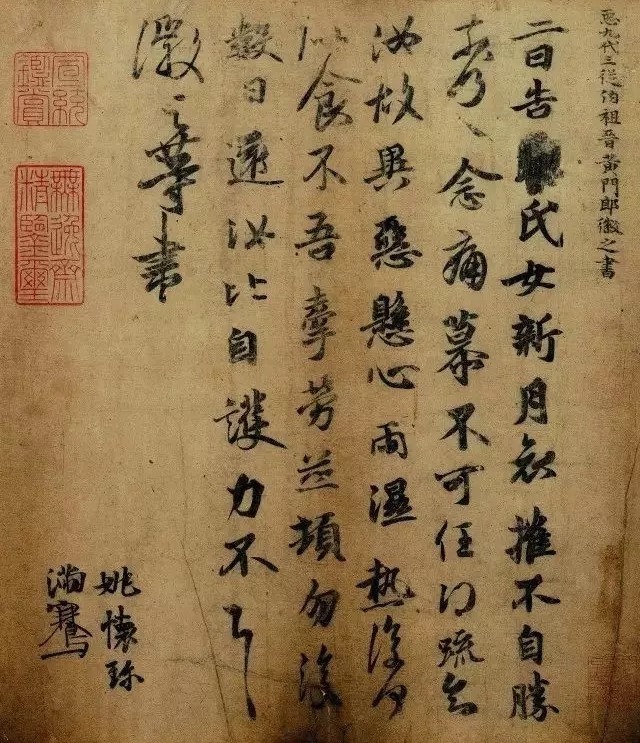 𢘑九代三從伯祖晉黃門郎徽之書
二日告氏女新月哀摧不自勝
奈何奈何念痛慕不可任得疏知
汝故異惡懸心雨濕熱復何
似食不吾牽勞並頓勿復
數日還汝比自護力不具
徽之等書
姚懷珍
滿騫
宣統鑑賞
無逸齋精鑒璽